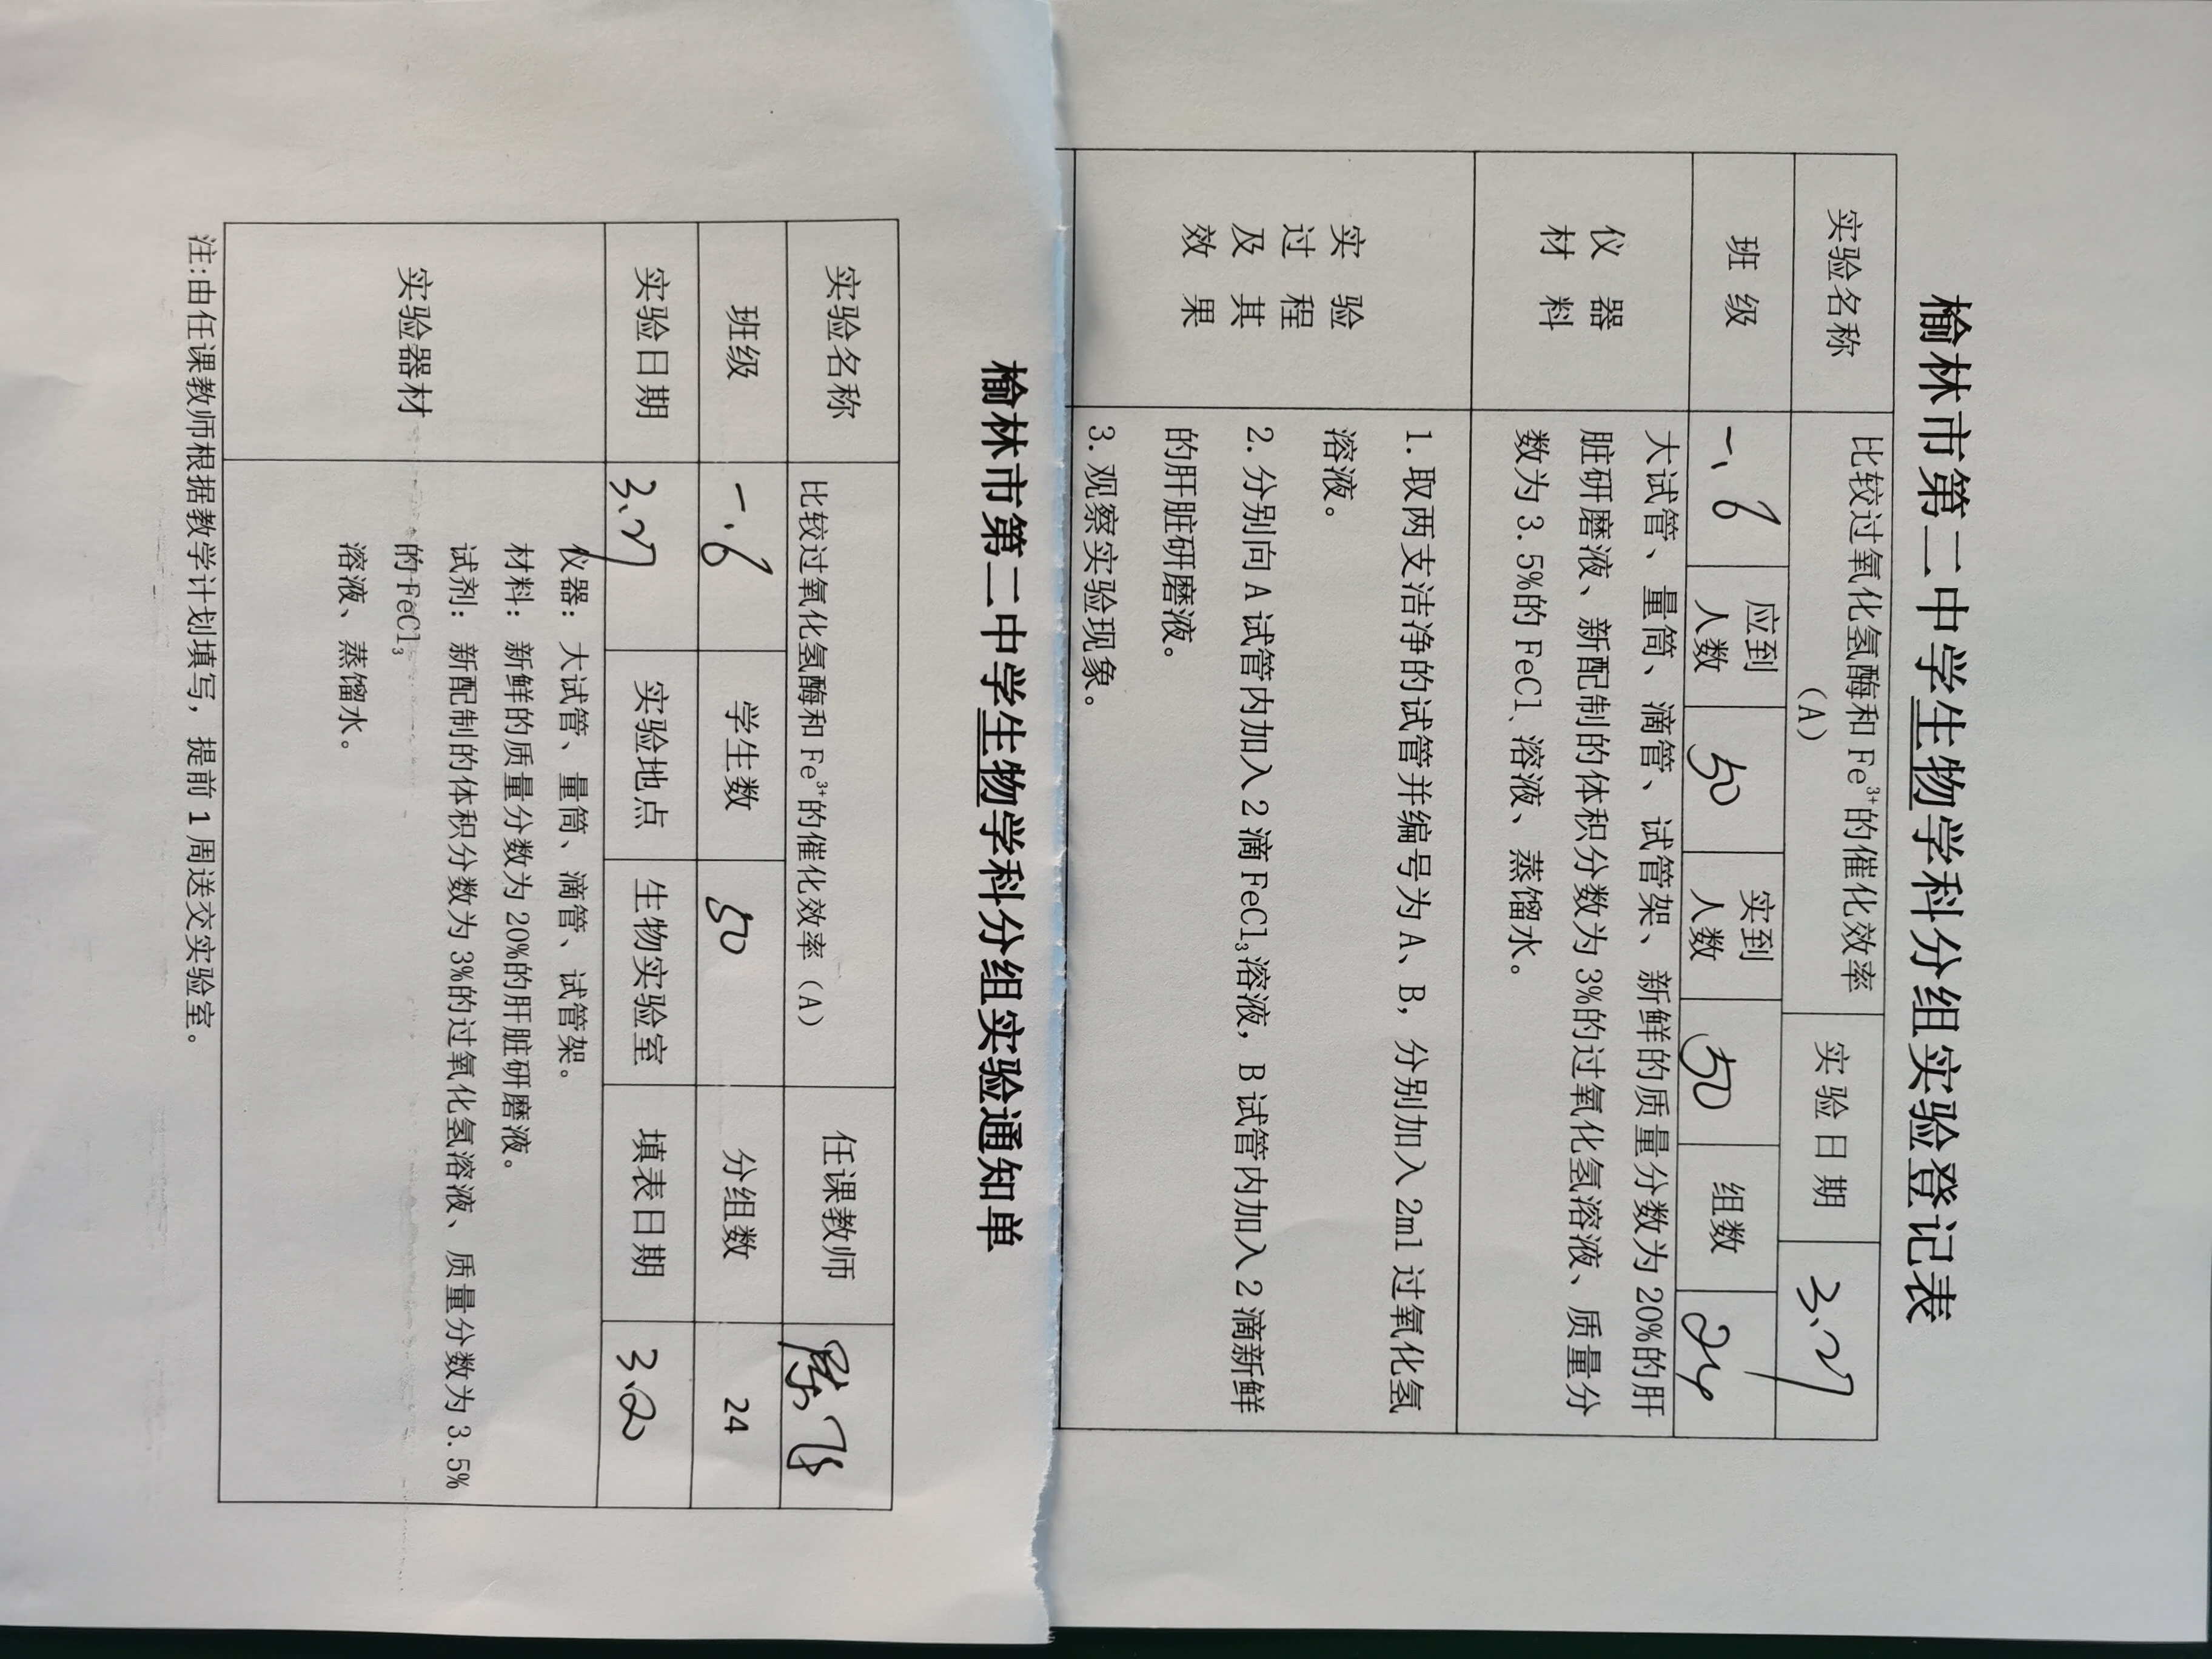 榆林市第二中学生物学科分组实验登记表
实验名称 比较过氧化氢酶和 Fe³⁺的催化效率 实验日期 3.27
（A）
班 级 一、6 应到人数 50 实到人数 50 组数 24
仪 器
材 料
大试管、量筒、滴管、试管架、新鲜的质量分数为 20%的肝
脏研磨液、新配制的体积分数为 3%的过氧化氢溶液、质量分
数为 3.5%的 FeCl、溶液、蒸馏水。
实 验
过 程
及 其
效 果
1. 取两支洁净的试管并编号为 A、B，分别加入 2ml 过氧化氢
溶液。
2. 分别向 A 试管内加入 2 滴 FeCl₃溶液，B 试管内加入 2 滴新鲜
的肝脏研磨液。
3. 观察实验现象。
榆林市第二中学生物学科分组实验通知单
实验名称 比较过氧化氢酶和 Fe³⁺的催化效率（A） 任课教师
班级 一.6 学生数 50 分组数 24
实验日期 3.27 实验地点 生物实验室 填表日期 3.20
实验器材
仪器：大试管、量筒、滴管、试管架。
材料：新鲜的质量分数为 20%的肝脏研磨液。
试剂：新配制的体积分数为 3%的过氧化氢溶液、质量分数为 3.5%
的 FeCl₃
溶液、蒸馏水。
注:由任课教师根据教学计划填写，提前 1 周送交实验室。